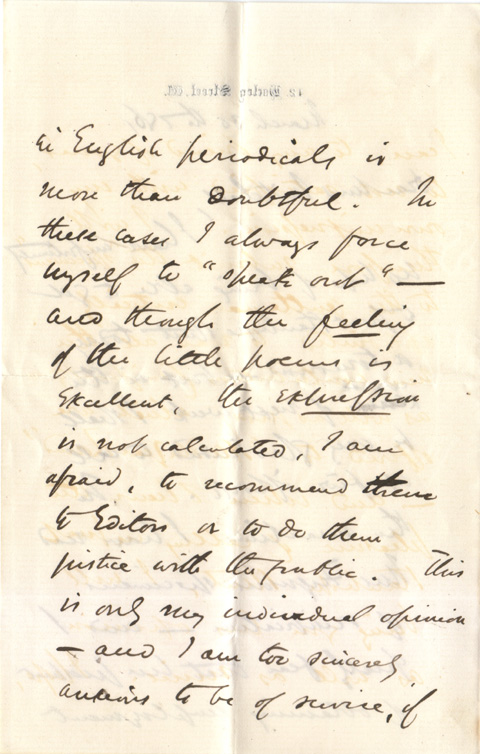 in English periodicals is
more than doubtful. In
these cases I always force
myself to "speak out" —
and though the feeling
of the little poems is
excellent, the expression
is not calculated, I am
afraid, to recommend them
to Editors or to do them
justice with the public. This
is only my individual opinion
— and I am too sincerely
anxious to be of service, if